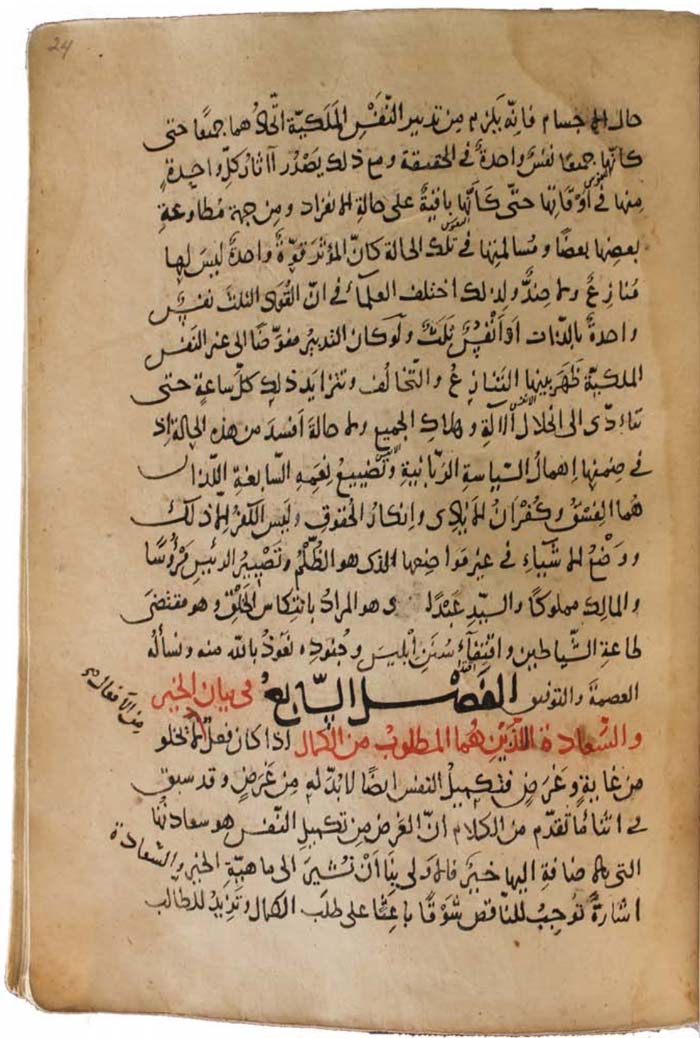 24
حال الاجسام فانّه يلزم من تدبير النّفس الملكيّة اتّحادُهما جمعًا حتى
كانّها جمعًا نفسٌ واحدةٌ في الحقيقة ومع ذلك يصدر آثار كلّ واحدةٍ
منها في اوقاتها حتّى كأنّها باقيةٌ على حالة الانفراد ومن جهة مطاوعةِ
النفوس
بعضِها بعضًا ومسالمتِها في تلك الحالة كانّ المؤثر قوّةٌ واحدةٌ ليس لها
النفوس
منازعٌ ولا ضدٌّ ولذلك اختلف العلمآء في انّ القوى الثلث نفسٌ
واحدةٌ بالذّات او أنفسٌ ثلثٌ ولو كان التدبير مفوّضًا الى غير النّفس
الملكيّة ظهَر بينها التنازعُ والتّخالُف وتتزايد ذلك كلّ ساعةٍ حتى
تتادّى الى انحلال الآلةِ وهلاك الجميع ولا حالةَ أفسد من هذه الحالة اذ
في ضمنها اهمالُ السّياسةِ الربّانيةِ وتضييعُ نِعَمِه السّابغةِ اللذان
هما الفسقُ وكفرانُ الايادى وانكار الحقوقِ وليس الكفرُ الا ذلك
ووَضْعُ الاشيآءِ في غير مواضعها الذى هو الظُّلْمُ وتصييرُ الرئيس مرؤُسًا
والمالك مملوكًا والسيّد عبدًا وهو المرادُ بانتكاس الخلْقِ وهو مقتضى
طاعةِ الشّياطين واقتفآءِ سُنَنِ ابليس وجُنودِه نعوذُ بالله منه ونسألُه
العصمةَ والتوفيق الفصل السّابع في بيان الخير
والسّعادة اللّذين هما المطلوب من الكمال اذا كان فعل لا يخلو
من الافعال
من غايةٍ وغَرضٍ فتكميلُ النفس ايضًا لا بدّ له مِن غرَضٍ وقد سبق
في اثناءِ ما تقدّم من الكلام انّ الغرضَ من تكميلِ النّفس هو سعادتُها
التي بالاضافةِ اليها خيرٌ فالاولى بنا أن نُشيرَ الى ماهيّةِ الخير والسّعادة
اشارةً تُوجبُ للنّاقص شوقًا باعثًا على طلب الكمال وتزيدُ للطالب